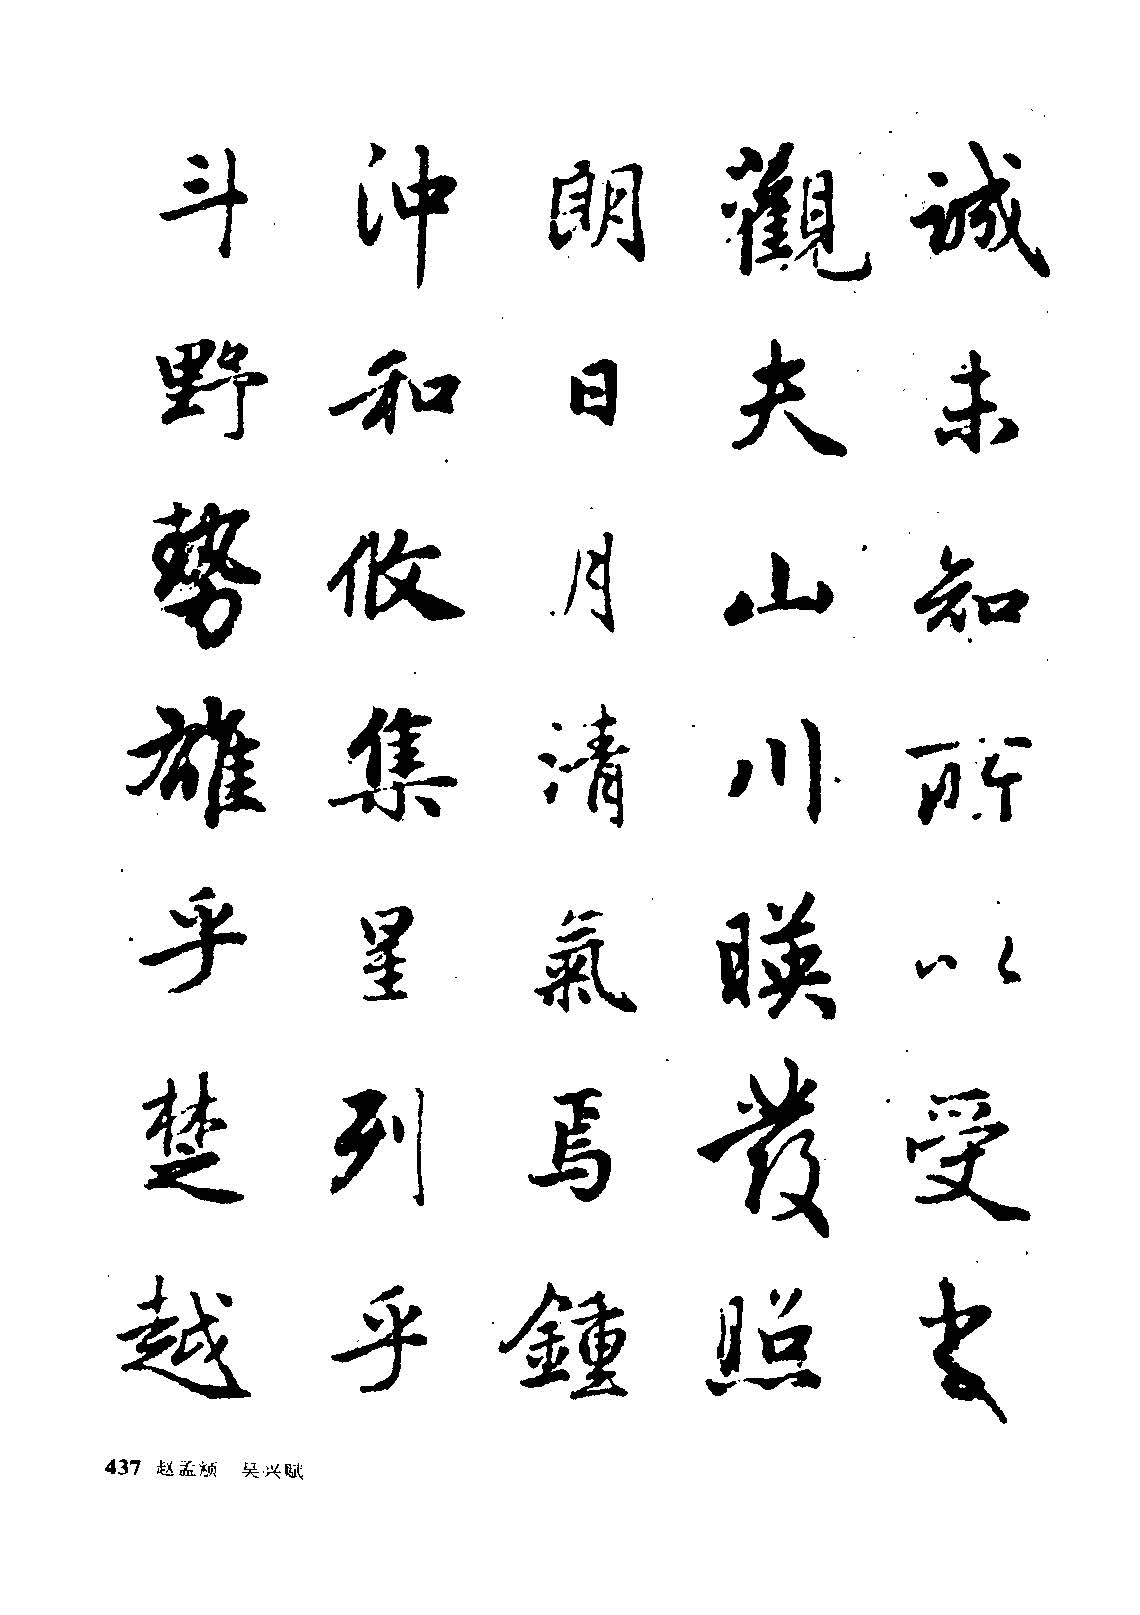 誠未知所以受之
觀夫山川暎發照
朗日月清氣焉鍾
沖和攸集星列乎
斗野勢雄乎楚越
437 赵孟頫 吴兴赋